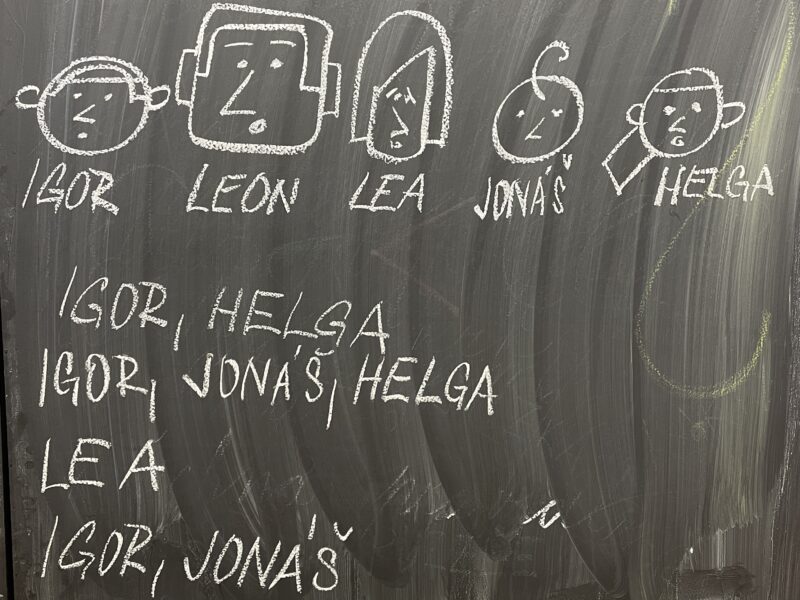 IGOR LEON LEA JONÁŠ HELGA
IGOR, HELGA
IGOR, JONÁŠ, HELGA
LEA
IGOR, JONÁŠ